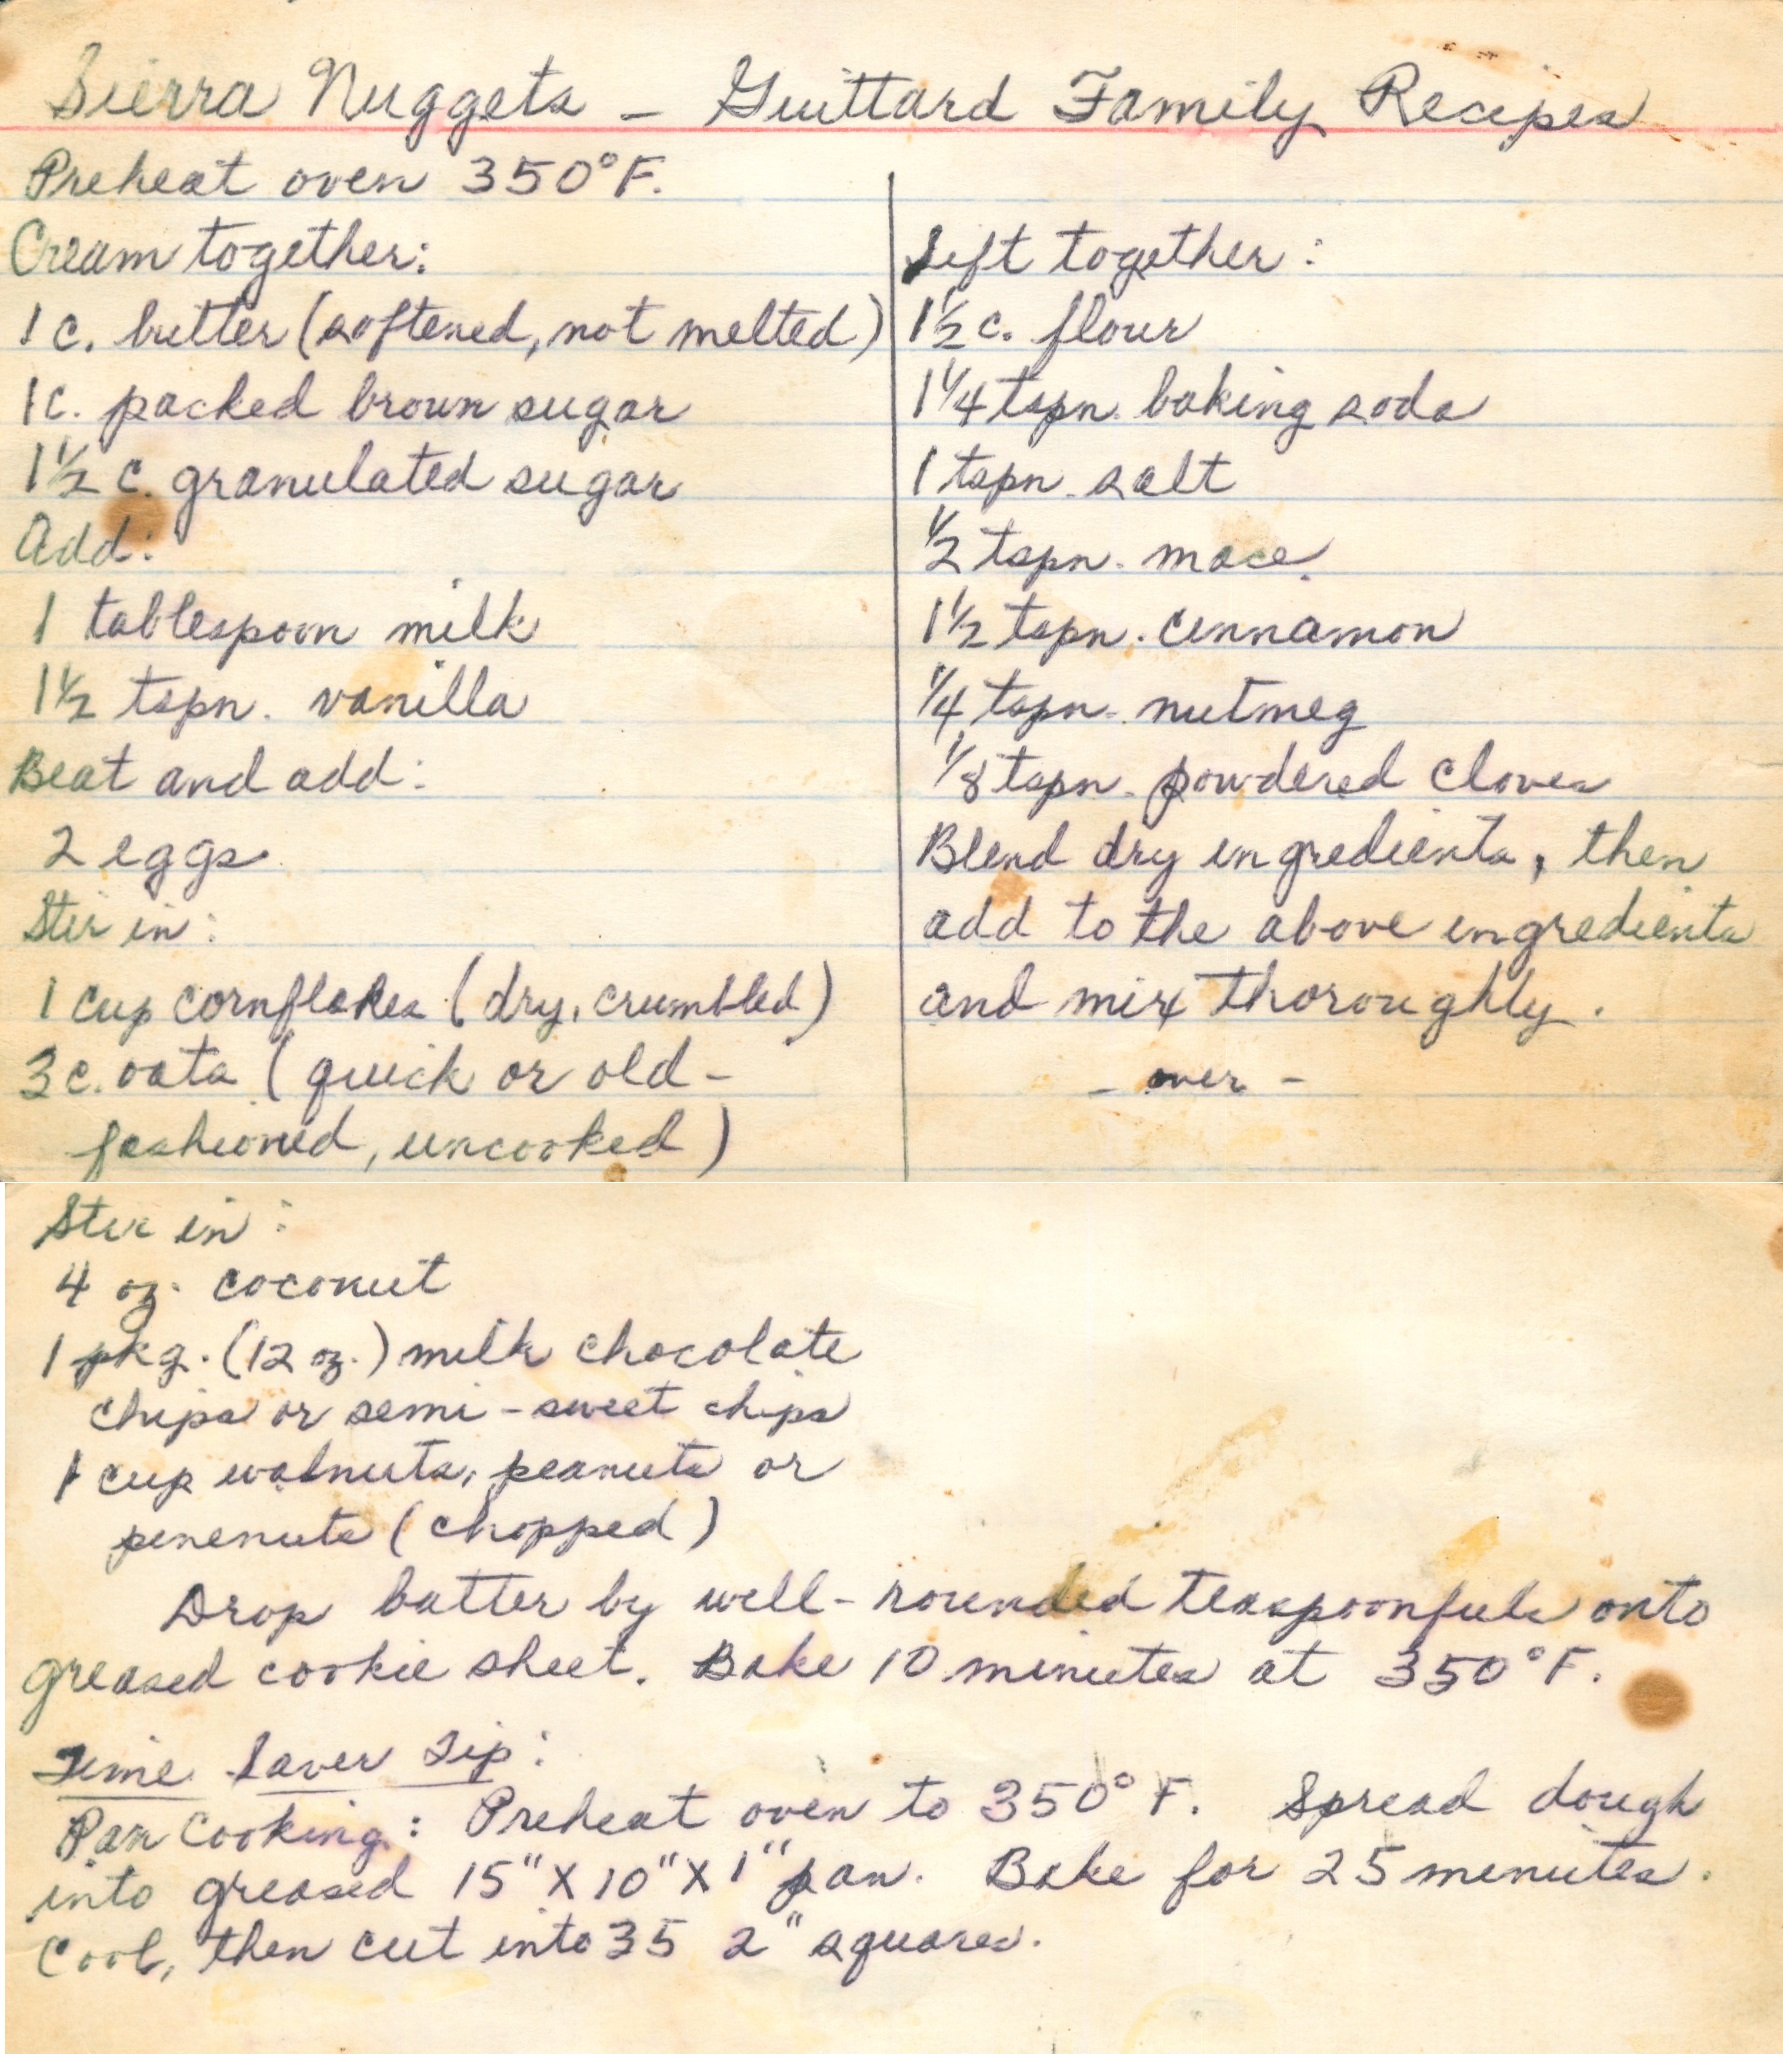 Sierra Nuggets - Guittard Family Recipes
Preheat oven 350°F.
Cream together:
1 c. butter (softened, not melted)
1 c. packed brown sugar
1 1/2 c. granulated sugar
Add:
1 tablespoon milk
1 1/2 tspn. vanilla
Beat and add:
2 eggs
Stir in:
1 cup cornflakes (dry, crumbled)
3 c. oats (quick or old-
fashioned, uncooked)
Sift together:
1 1/2 c. flour
1 1/4 tspn. baking soda
1 tspn. salt
1/2 tspn. mace
1 1/2 tspn. cinnamon
1/4 tspn. nutmeg
1/8 tspn. powdered cloves
Blend dry ingredients, then
add to the above ingredients
and mix thoroughly.
- over -
Stir in:
4 oz. coconut
1 pkg. (12 oz.) milk chocolate
chips or semi-sweet chips
1 cup walnuts, peanuts or
pinenuts (chopped)
Drop batter by well-rounded teaspoonfuls onto
greased cookie sheet. Bake 10 minutes at 350°F.
Time Saver Tip:
Pan Cooking: Preheat oven to 350° F. Spread dough
into greased 15" X 10" X 1" pan. Bake for 25 minutes.
Cool, then cut into 35 2" squares.